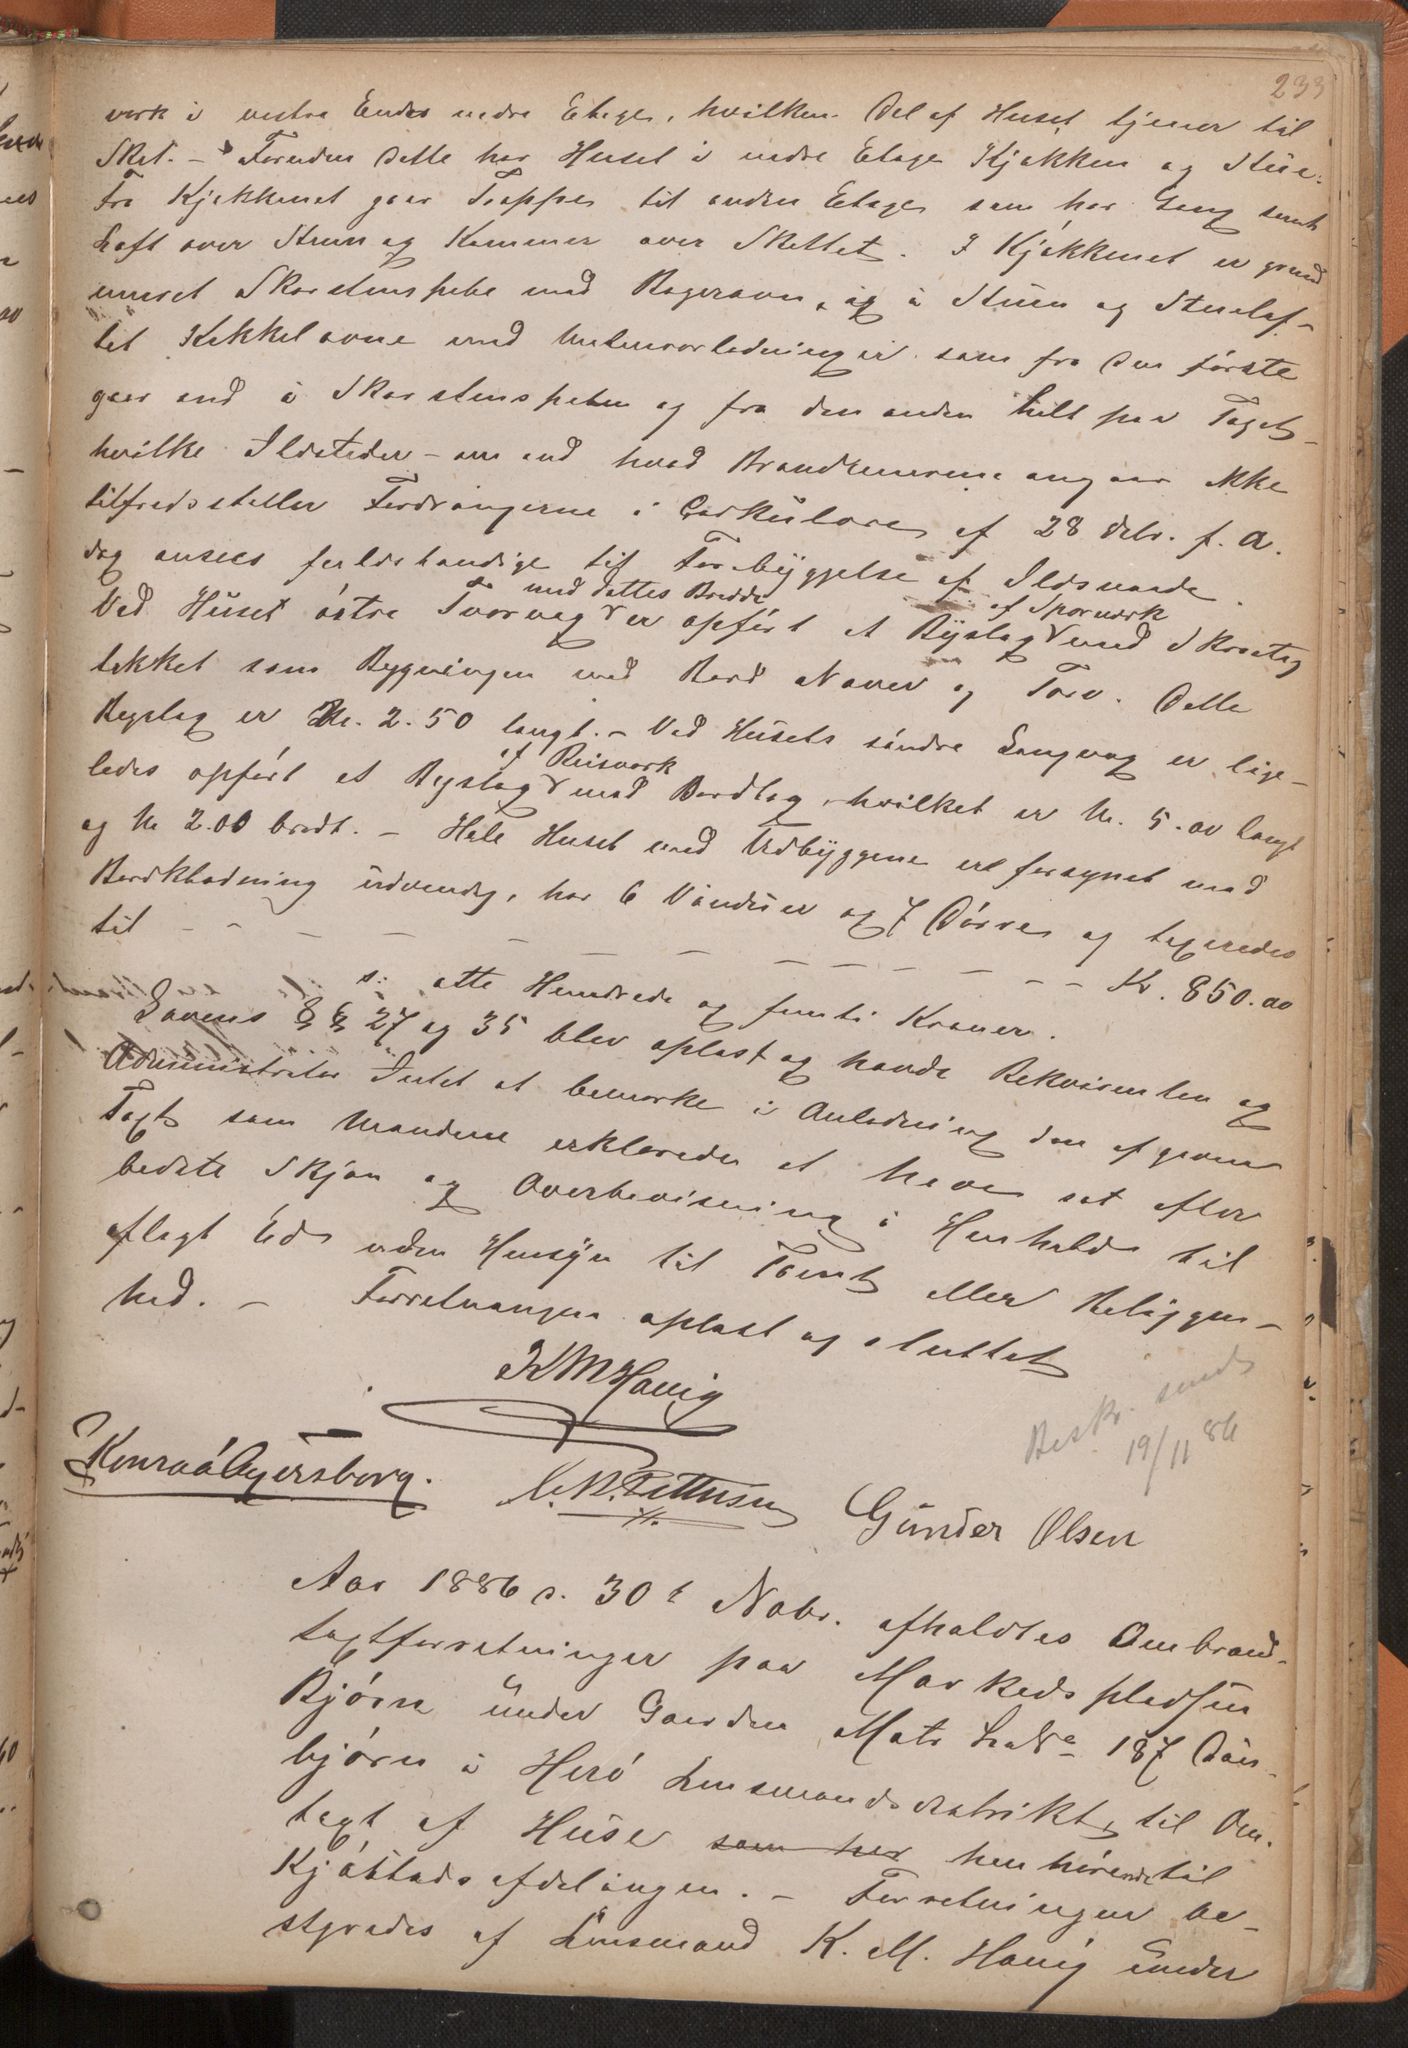 233
værk i vestre Ende nedre Etage, hvilken Del af Huset tjener til
Sket. – Foruden dette har Huset i nedre Etage Kjøkken og Stue.
Fra Kjøkkenet gaar Trappe til anden Etage som har Gang samt
Loft over Stuen og Kammer over Skettet. I Kjøkkenet er grund
muret Skorstenspibe med Bagerovn, og i Stuen og Stuelof-
tet Kakkelovne med Murerørledninger som fra den første
gaar ind i Skorstenspiben og fra den anden helt paa Taget –
hvilke Ildsteder – om end hvad Brandmurene angaar ikke
tilfredsstiller Fordringerne i Cirkulære af 28 Debr. f. A.
dog ansees fuldstændige til Forebyggelse af Ildsvaade.
med dettes Bredde af Sporværk
Ved Huset østre Tvervæg er opført et Byslag med Skraatag
tækket som Bygningen med Bord Næver og Torv. Dette
Byslag er M. 2.50 langt. – Ved Husets søndre Langvæg er lige-
af Reisværk
ledes opført et Byslag med Bordtag, hvilket er M. 5.00 langt
og M 2.00 bredt. – Hele Huset med Udbyggene er forsynet med
Bordklædning udvendig, har 6 Vinduer og 7 Dørre og taxeredes
til – – – – – – – – – – – – Kr. 850.00
s: otte Hundrede og femti Kroner.
Lovens §§ 27 og 35 blev oplæst og havde Rekvirenten og
Administrator Intet at bemærke i Anledning den afgivne
Taxt som Mændene erklærede at have sat efter
bedste Skjøn og Overbevisning i Henhold til
aflagt Ed uden Hensyn til Tomt eller Beliggen-
hed. – Forretningen oplæst og sluttet
K M Havig
Beskr. sendt
19/11 86
Konrad Agersborg. C. N. Pettersen Gunder Olsen
Aar 1886 d. 30t Nobr. afholdtes Ombrand-
taxtforretninger paa Markedspladsen
Bjørn under Gaarden Matr Lb No 187 Døn-
bjørn i Herø Lensmandsdistrikt, til Om-
taxt af Huse som her henhørende til
Kjøbstadsafdelingen. – Forretningen be-
styredes af Lensmand K. M. Havig under